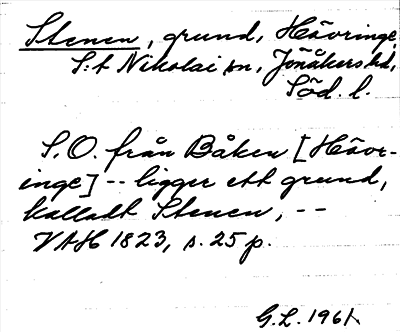 Stenen, grund, Hävringe,
S:t Nikolai sn, Jönåkers hd,
Söd. l.
S.O. från Båken [Hävr-
inge] -- ligger ett grund,
kalladt Stenen, --
VAH 1823, s. 25 p.
G.L. 1961